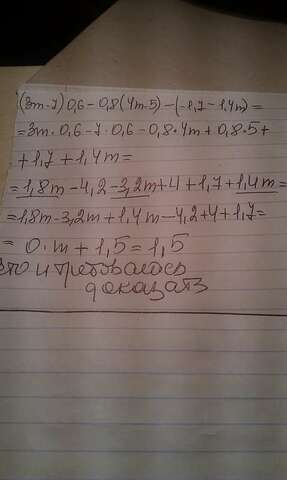 (3m-7)0,6-0,8(4m-5)-(-1,7-1,4m)=
=3m·0,6-7·0,6-0,8·4m+0,8·5+
+1,7+1,4m=
=1,8m-4,2-3,2m+4+1,7+1,4m=
=1,8m-3,2m+1,4m-4,2+4+1,7=
=0·m+1,5=1,5
что и требовалось
доказать